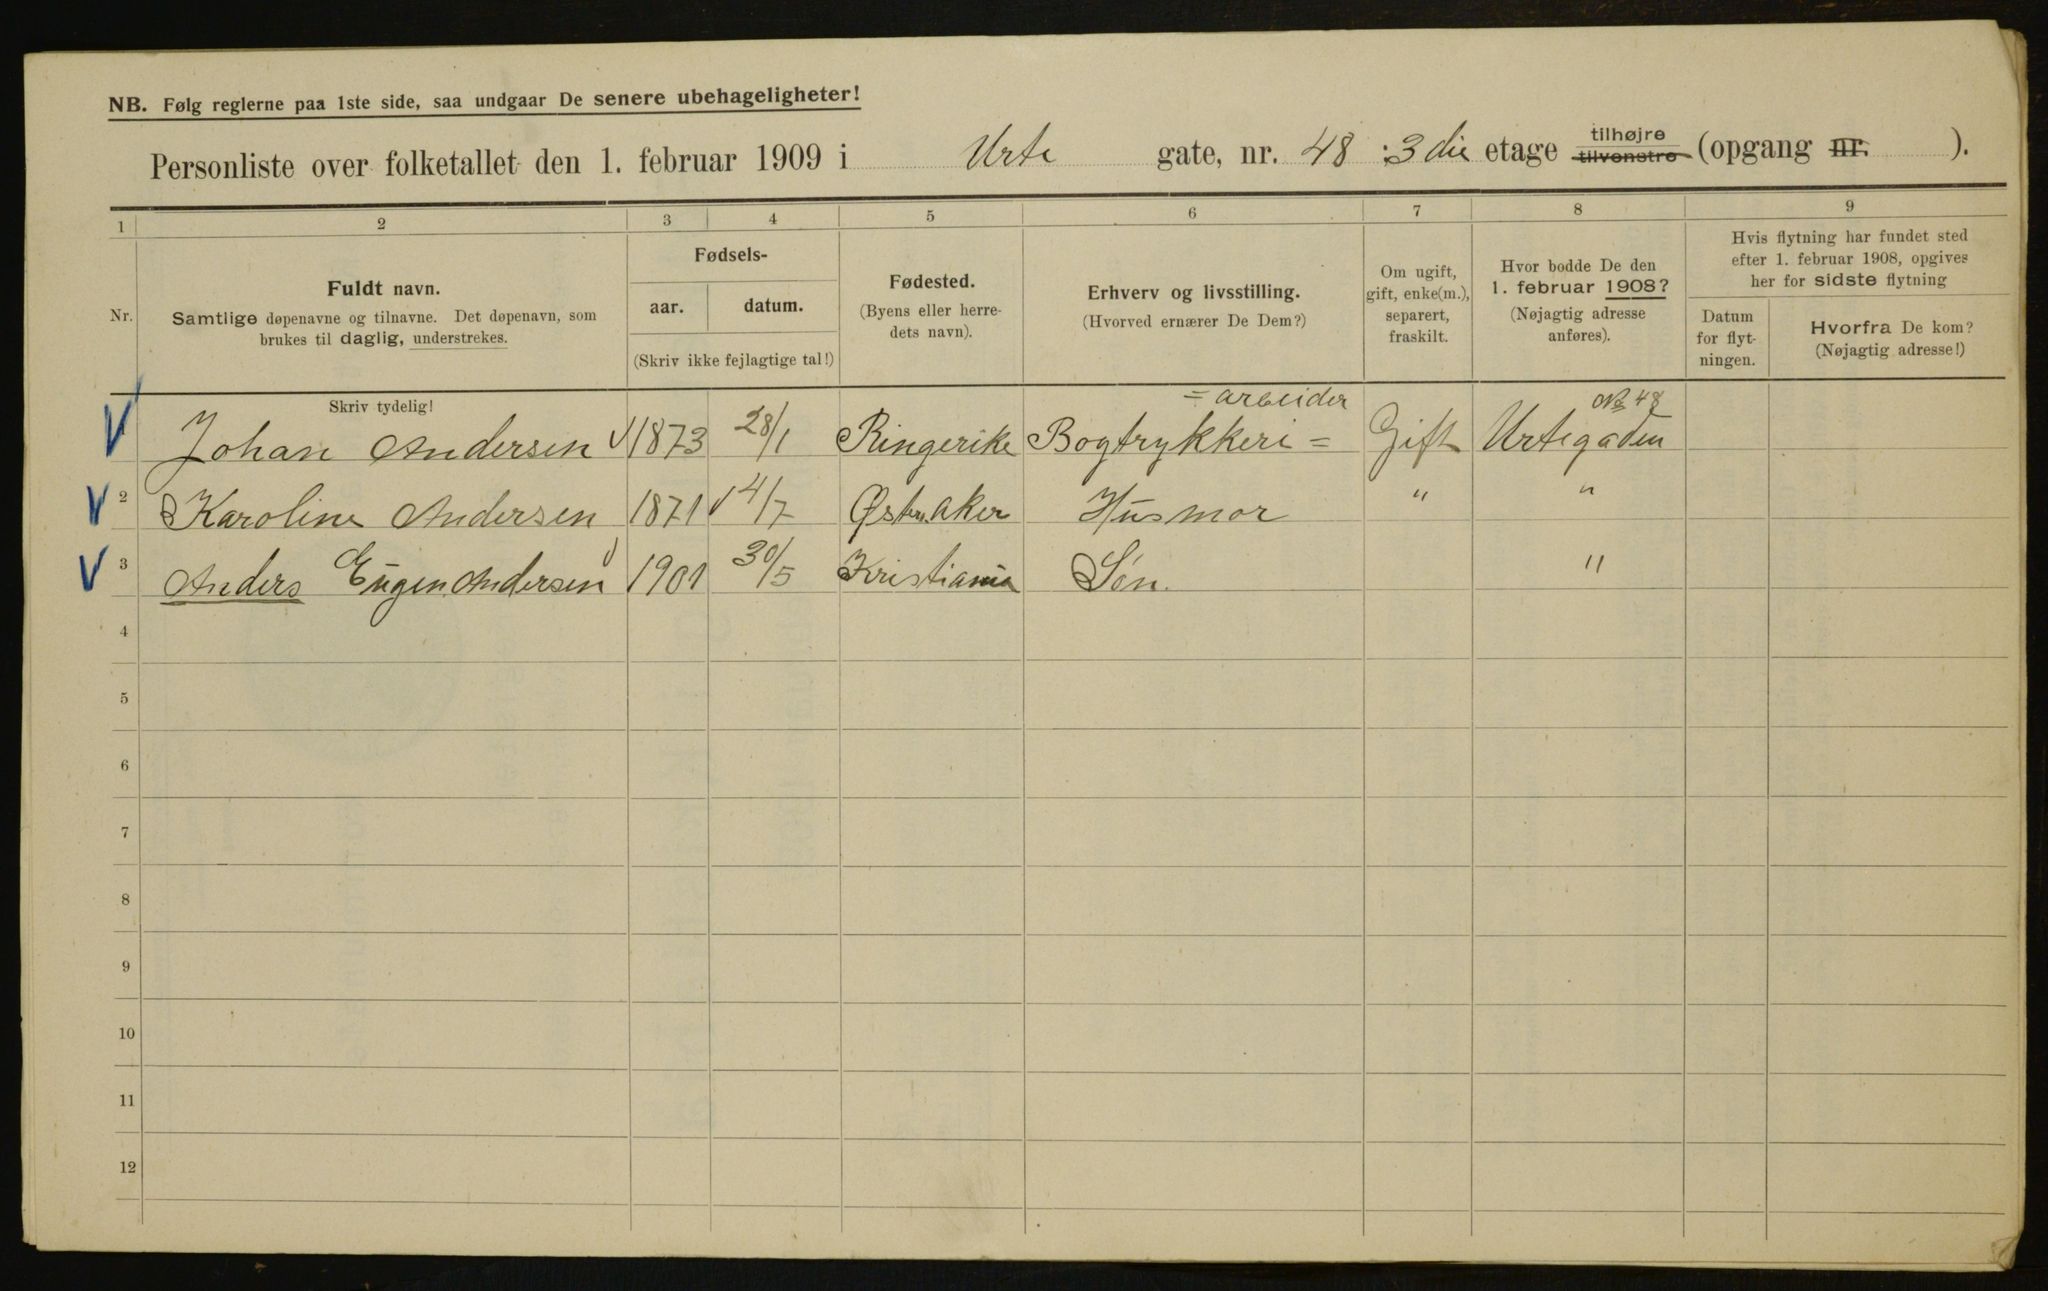 NB. Følg reglerne paa 1ste side, saa undgaar De senere ubehageligheter!
Personliste over folketallet den 1. februar 1909 i Urte gate, nr. 48 : 3die etage tilhøjre tilvenstre (opgang nr. ).
1 2 3 4 5 6 7 8 9
Nr.
Fuldt navn.
Samtlige døpenavne og tilnavne. Det døpenavn, som
brukes til daglig, understrekes.
Fødsels-
aar. datum.
(Skriv ikke fejlagtige tal!)
Fødested.
(Byens eller herre-
dets navn).
Erhverv og livsstilling.
(Hvorved ernærer De Dem?)
Om ugift,
gift, enke(m.),
separert,
fraskilt.
Hvor bodde De den
1. februar 1908?
(Nøjagtig adresse
anføres).
Hvis flytning har fundet sted
efter 1. februar 1908, opgives
her for sidste flytning
Datum
for flyt-
ningen.
Hvorfra De kom?
(Nøjagtig adresse!)
Skriv tydelig!
= arbeider No 48
Johan Andersen 1873 28/1 Ringerike Bogtrykkeri = Gift Urtegaden
2 Karoline Andersen 1871 4/7 Østre Aker Husmor " "
3 Anders Eugen Andersen 1901 30/5 Kristiania Søn. "
4
5
6
7
8
9
10
11
12